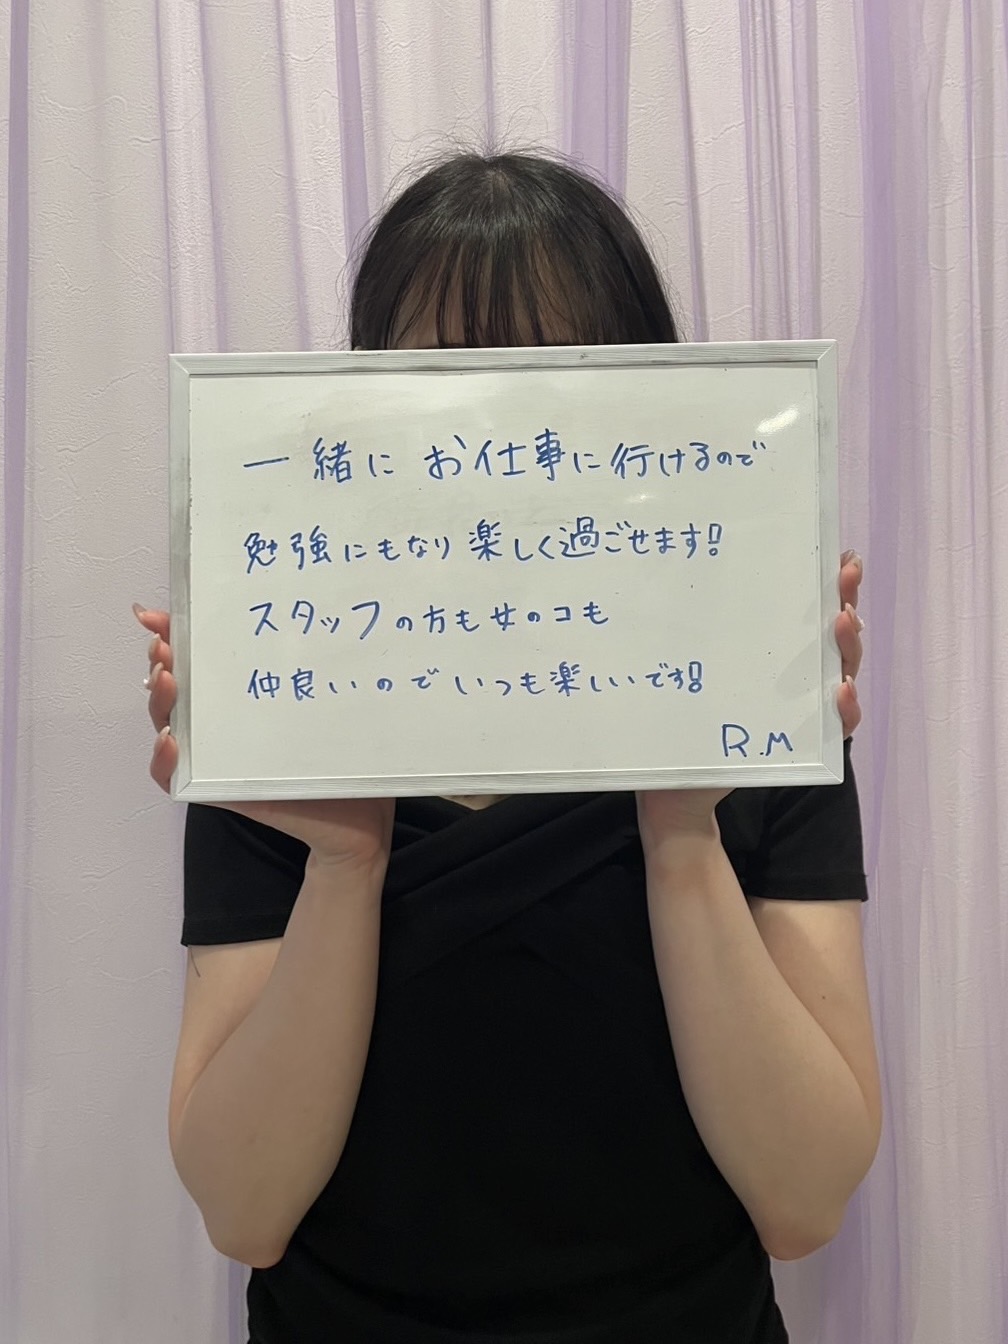 一緒に お仕事に行けるので
勉強にもなり楽しく過ごせます!
スタッフの方も女のコも
仲良いのでいつも楽しいです!
R.M